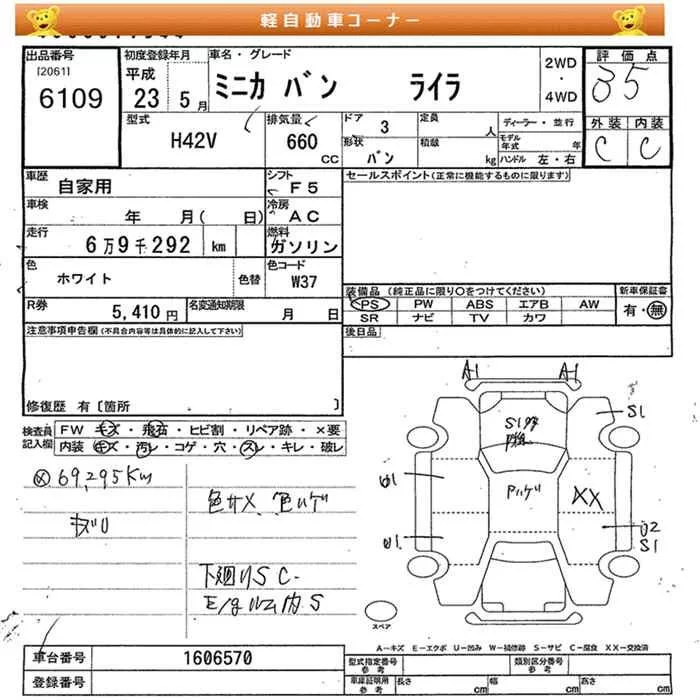 軽自動車コーナー
出品番号 [2061] 6109
初度登録年月 平成 23 5月
車名・グレード ミニカ バン ライラ
2WD ・ 4WD
評価点 35
型式 H42V
排気量 660 cc
ドア 3
形状 バン
定員 人
積載 kg
ディーラー・並行
モデル年式 年
ハンドル 左・右
外装 C
内装 C
車歴 自家用
シフト F5
セールスポイント(正常に機能するものに限ります)
車検 年 月( 日)
冷房 AC
走行 6万9千292 km
燃料 ガソリン
色 ホワイト 色替
色コード W37
装備品 (純正品に限り○をつけてください)
新車保証書 有・無
PS PW ABS エアB AW
SR ナビ TV カワ
R券 5,410円
名変通知期限 月 日
後日品
注意事項申告欄(不具合内容等は具体的に記入して下さい)
修復歴 有〔箇所 〕
検査員記入欄
FW キズ・飛石・ヒビ割・リペア跡・×要
内装 キズ・汚レ・コゲ・穴・スレ・キレ・破レ
69,295Km
キズU
色サメ、色ハゲ
下廻りS C-
E/gルーム内 S
A1 A1
S1
S1
U1
Pハゲ
XX
U1
U2
S1
スペア
A-キズ E-エクボ U-凹み W-補修跡 S-サビ C-腐食 XX-交換済
車台番号 1606570
登録番号
型式指定番号 参考
類別区分番号 参考
車庫証明用 参考 長さ cm 幅 cm 高さ cm